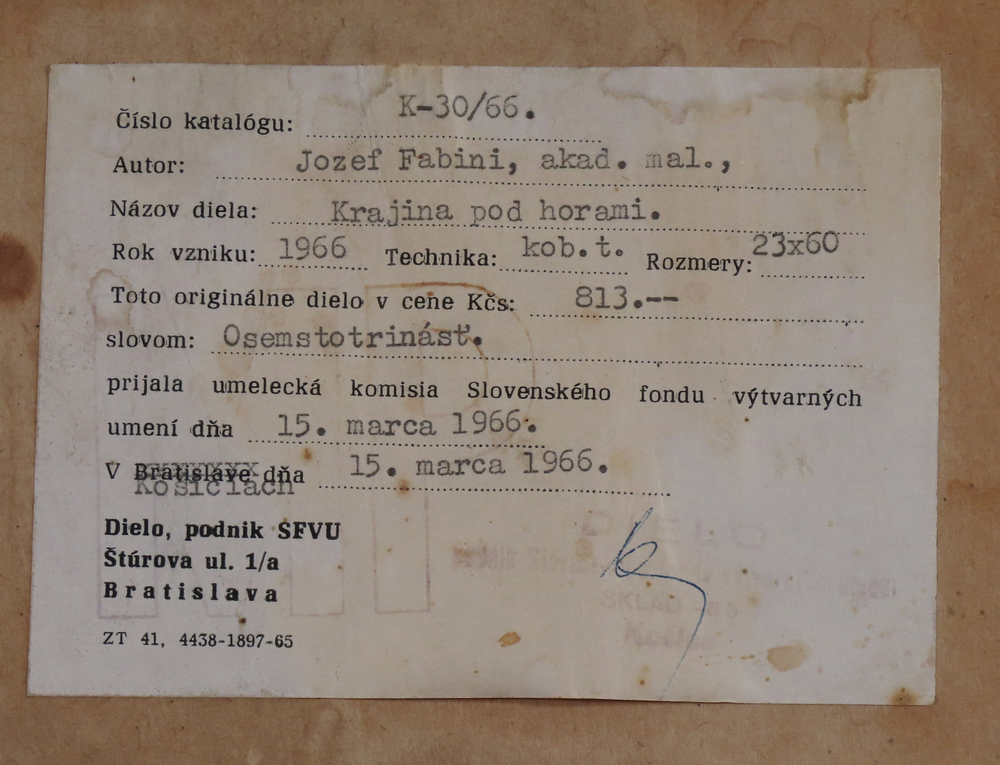 Číslo katalógu: K-30/66.
Autor: Jozef Fabini, akad. mal.,
Názov diela: Krajina pod horami.
Rok vzniku: 1966 Technika: kob.t. Rozmery: 23x60
Toto originálne dielo v cene Kčs: 813.--
slovom: Osemstotrinásť.
prijala umelecká komisia Slovenského fondu výtvarných
umení dňa 15. marca 1966.
V Bratislave dňa 15. marca 1966.
Košiciach
Dielo, podnik SFVU
Štúrova ul. 1/a
Bratislava
ZT 41, 4438-1897-65
DIELO
SKLAD